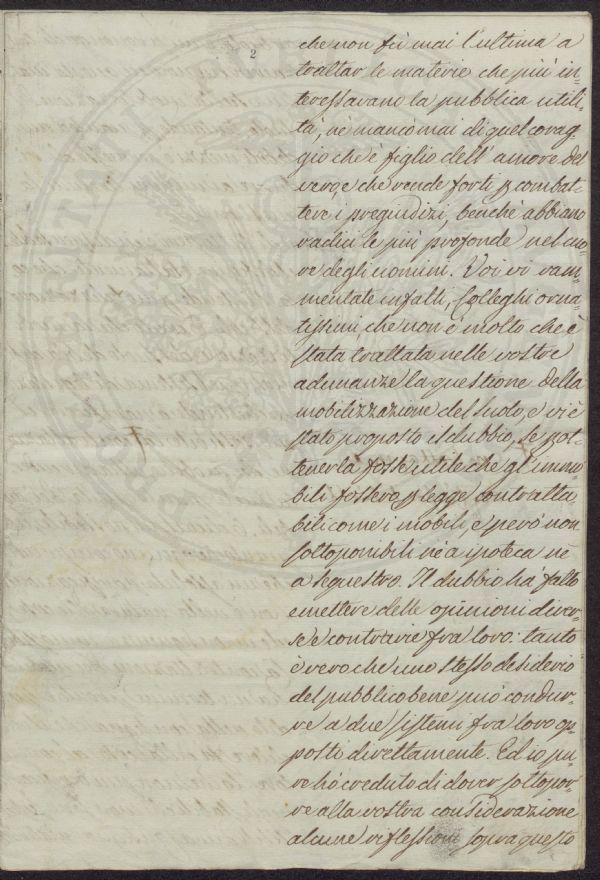 2
che non fù mai l'ultima a
trattar le materie che più in-
teressavano la pubblica utili-
tà, nè mancò mai di quel corag-
gio che è figlio dell' amore del
vero, e che rende forti p combat-
tere i pregiudizi, benchè abbiano
radici le più profonde nel cuo-
re degli uomini. Voi vi ram-
mentate infatti, Colleghi orna-
tissimi, che non è molto che è
stata trattata nelle vostre
adunanze la questione della
mobilizzazione del Suolo, e vi è
stato proposto il dubbio, se pot-
tenerla fosse utile che gl' immo-
bili fossero p legge contratta
bili come i mobili, e però non
sottoponibili nè a ipoteca nè
a sequestro. Il dubbio hà fatto
emettere delle opinioni diver-
se e contrarie fra loro: tanto
è vero che uno stesso desiderio
del pubblico bene può condur-
re a due sistemi fra loro op-
posti direttamente. Ed io pu-
re hò creduto di dover sottopor-
re alla vostra considerazione
alcune riflessioni sopra questo